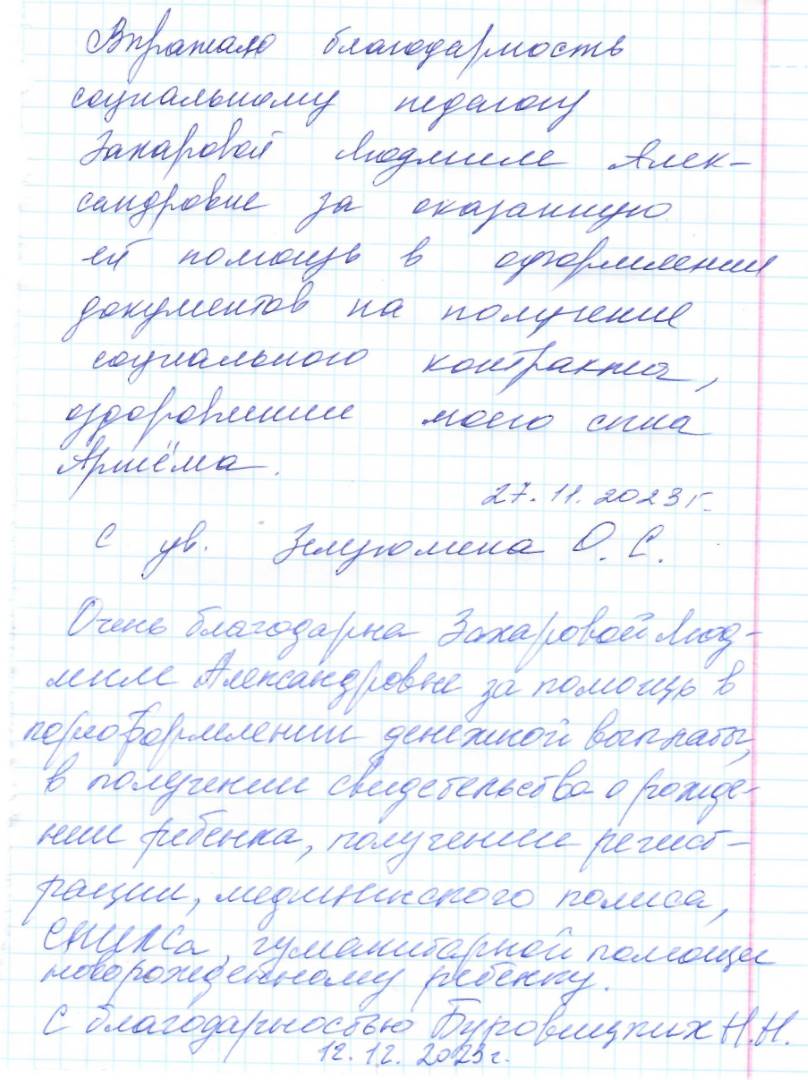 Выражаю благодарность
социальному педагогу
Захаровой Людмиле Алек-
сандровне за оказанную
ей помощь в оформлении
документов на получение
социального контракта,
оздоровлении моего сына
Артёма.
27.11.2023 г.
С ув. О. С.
Очень благодарна Захаровой Люд-
миле Александровне за помощь в
денежной выплаты,
в получении свидетельства о рожде-
нии ребенка, получении регист-
рации, медицинского полиса,
СНИЛСа, гуманитарной помощи
новорожденному ребенку.
С благодарностью Н.Н.
12.12. 2023 г.